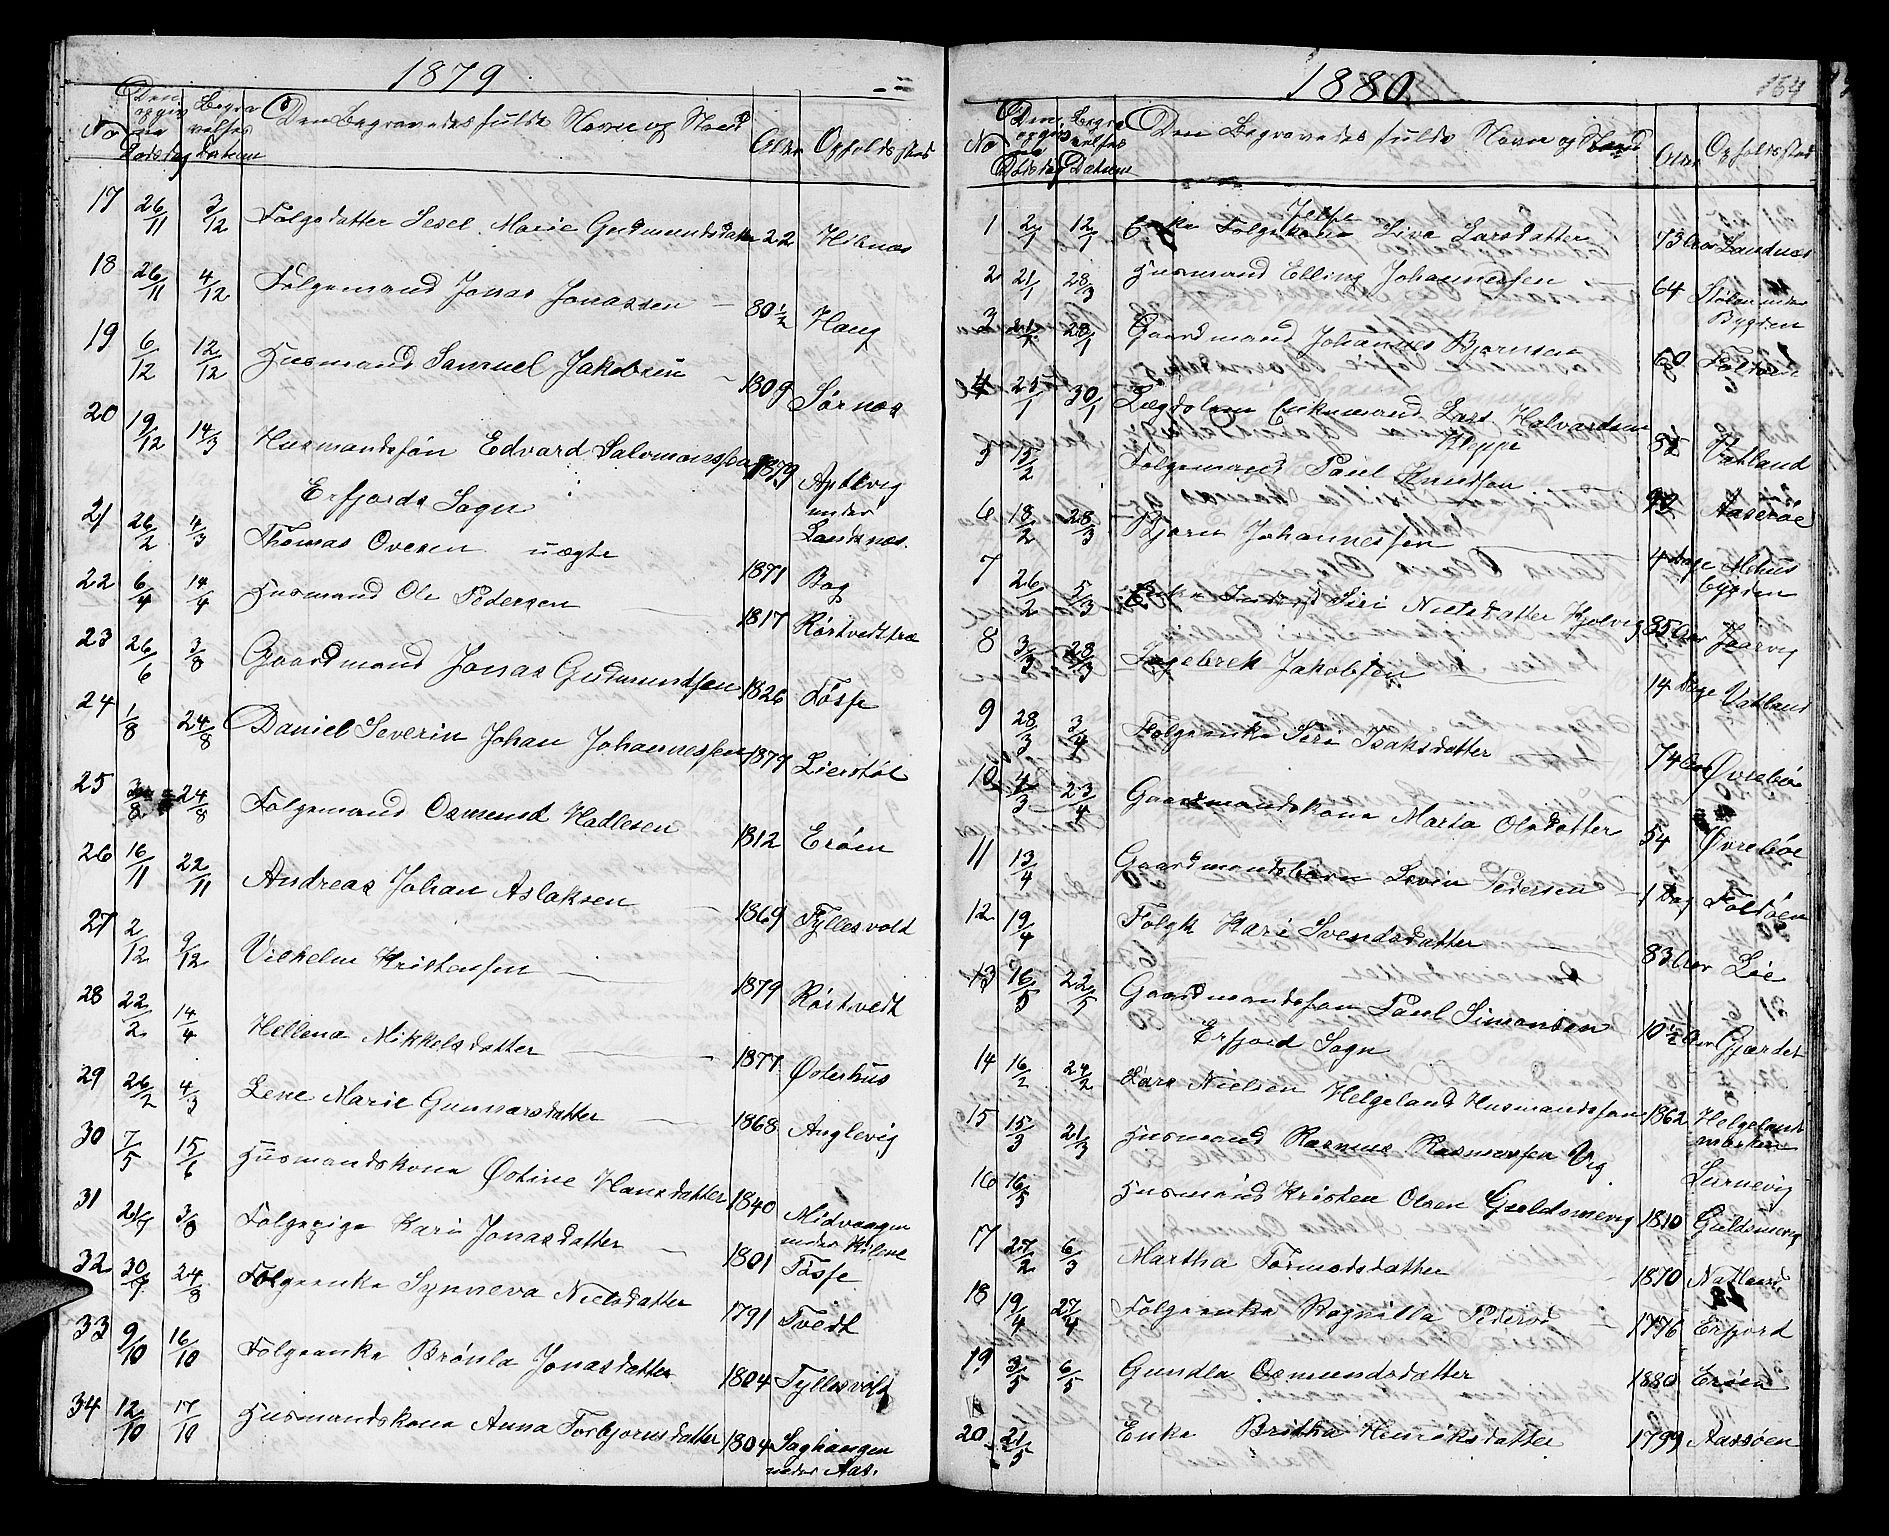 1879
No Den opgivne Dødsdag Begravelses Datum Den Begravedes fulde Navne og Stand Alder Opholdssted
17 26/11 3/12 Folgedatter Sesel Marie Gudmundsdatter 22 Hiknæs
18 26/11 4/12 Følgemand Jonas Jonassen — 80 1/2 Haug
19 6/12 12/12 Husmand Samuel Jakobsen — 1809 Sørnæs
20 19/12 14/3 Husmandssøn Edvard Salomonsen 1879 Apelvig under Landsnæs.
Erfjords Sogn
21 26/2 4/3 Thomas Ovesen uægte 1871 Bog
22 6/4 14/4 Husmand Ole Pedersen — 1817 Røstvedttræ
23 26/6 3/8 Gaardmand Jonas Gudmundsen 1826 Tøsse
24 1/8 24/8 Daniel Severin Johan Johannessen 1879 Lierstøl
25 /8 24/8 Følgemand Osmund Hadlesen 1812 Erøen
26 16/11 22/11 Andreas Johan Aslaksen — 1869 Tyllesvold
27 2/12 9/12 Vilhelm Kristensen — 1879 Røstvedt
28 22/2 14/4 Hellena Mikkelsdatter — 1877 Østerhus
29 26/2 4/3 Lene Marie Gunnarsdatter — 1868 Anglevig
30 7/5 15/6 Husmandskone Østine Hansdatter 1840 Midvaagen under Kilene
31 21/7 3/8 Følgepige Kari Jonasdatter — 1801 Tøsse
32 30/7 24/8 Følgeenke Synneva Nielsdatter 1791 Tvedt
33 9/10 16/10 Følgeenke Brønla Jonasdatter 1804 Tyllesvold
34 12/10 17/10 Husmandskone Anna Torbjørnsdatter 1804 Saghaugen under Aas.
1880.
164
No Den opgivne Dødsdag Begravelses Datum Den Begravedes fulde Navne og Stand Alder Opholdssted
Jelse
1 2/1 12/1 Enke Følgekone Siva Larsdatter 73 Aar Landnæs
2 21/1 28/3 Husmand Elling Johannessen — 64 Stølen under Bygden
3 28/1 Gaardmand Johannes Bjørnsen 60 Foldøen
4 25/1 30/1 Lægdslem Enkemand Lars Halvardsen Kleppe 82 Vatland
5 15/2 Følgemand Paul Knudsen — 92 Aaserøe
6 18/2 28/3 Bjørn Johannessen — 4 Dage Mehus bygden
7 26/2 5/3 Enke Inderst Siri Nielsdatter Hjolvig 85 Aar Jaarvig
8 3/3 28/3 Ingebrek Jakobsen — 14 Dage Vatland
9 28/3 3/4 Følgeenke Siri Isaksdatter 74 Aar Øvrebøe
10 4/3 23/4 Gaardmandskone Marta Olsdatter 54 Øvrebøe
11 13/4 Gaardmandsbarn Lovin Pedersen — 1 Dag Foldøen
12 19/4 Følgk Kari Svendsdatter — 83 Aar Lie
13 16/5 22/5 Gaardmandssøn Paul Simonsen 10 1/2 Aar Gjærdet
Erfjord Sogn
14 16/2 24/2 Lars Nielsen Helgeland Husmandssøn 1862 Helgelandmarken
15 15/3 21/3 Husmand Rasmus Rasmussen Vig Lurnevig
16 16/5 Husmand Kristen Olsen Gieldsmevig 1810 Gieldsmevig
17 27/2 6/3 Martha Tormodsdatter 1870 Natland
18 19/4 27/4 Følgeenke Ragnilla Pedersd — 1776 Erfjord
19 3/5 6/5 Gundla Osmundsdatter 1880 Erøen
20 21/5 Enke Britha Henriksdatter 1799 Aasøen